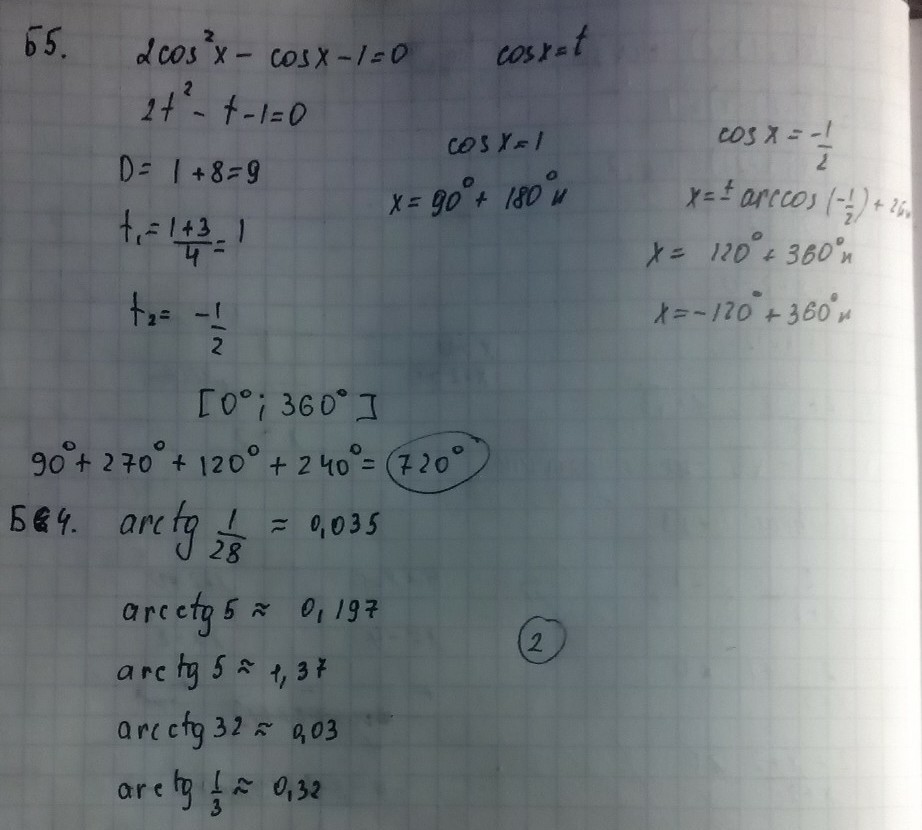 Б5. 2cos²x - cosx - 1 = 0 cosx = t
2t² - t - 1 = 0
D = 1 + 8 = 9
t₁ = (1+3)/4 = 1
t₂ = -1/2
cosx = 1
x = 90° + 180°н
cosx = -1/2
x = ± arccos(-1/2) +
x = 120° + 360°н
x = -120° + 360°н
[0°; 360°]
90° + 270° + 120° + 240° = 720°
Б4. arctg 1/28 ≈ 0,035
arcctg 5 ≈ 0,197
2
arctg 5 ≈ 1,37
arcctg 32 ≈ 0,03
arctg 1/3 ≈ 0,32